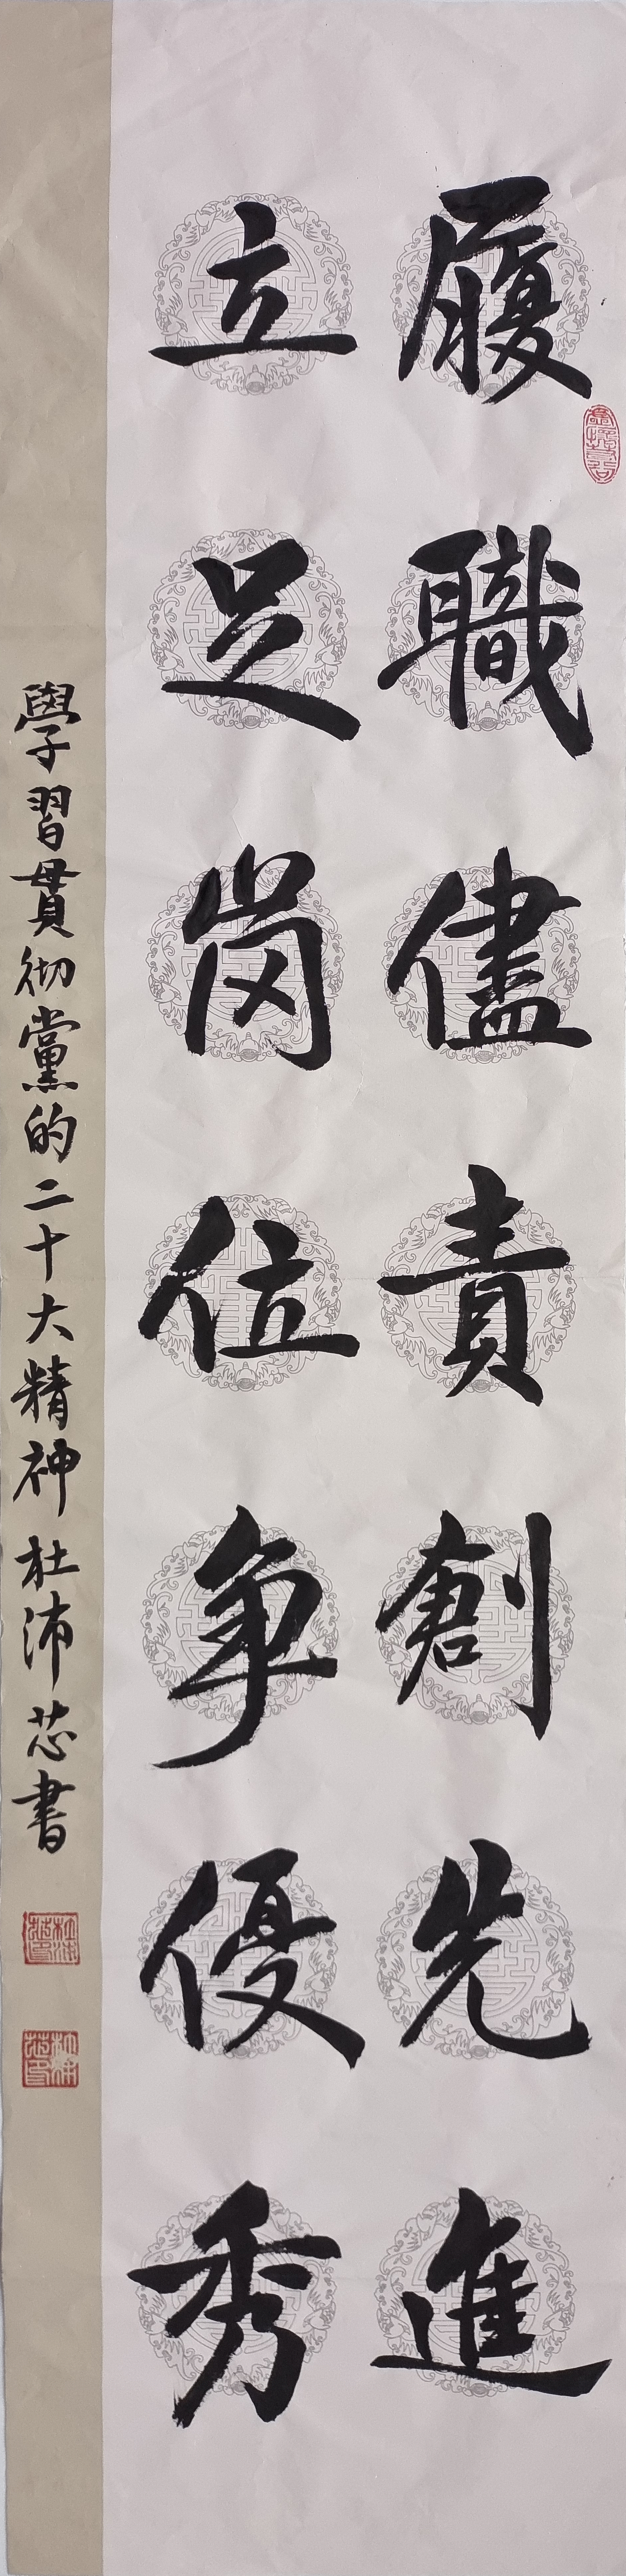 履職儘責創先進
立足岗位争優秀
學習貫彻黨的二十大精神 杜沛芯書